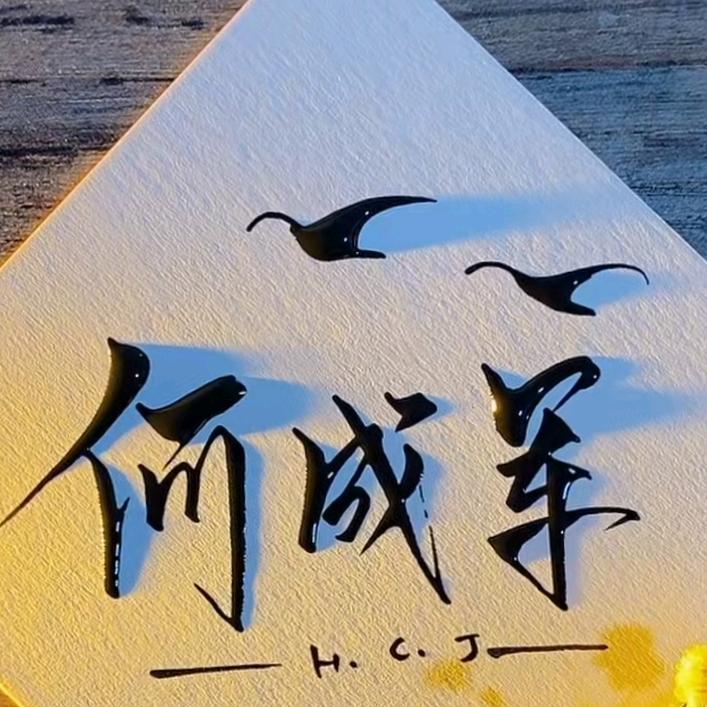 何成军
H. C. J